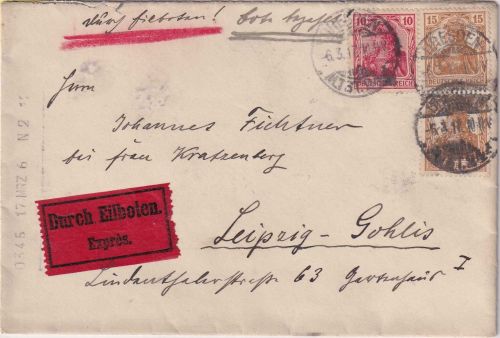 durch Eilboten! Bote bezahlt!
10 10
DEUTSCHES REICH
15 15
DRESDEN
6.3.17.
Herrn
Johannes Fichtner
bei Frau Kratzenberg
Durch Eilboten.
Exprès.
Leipzig-Gohlis
Lindenthalerstraße 63 Gartenhaus I
0345 17 MRZ 6 N 2